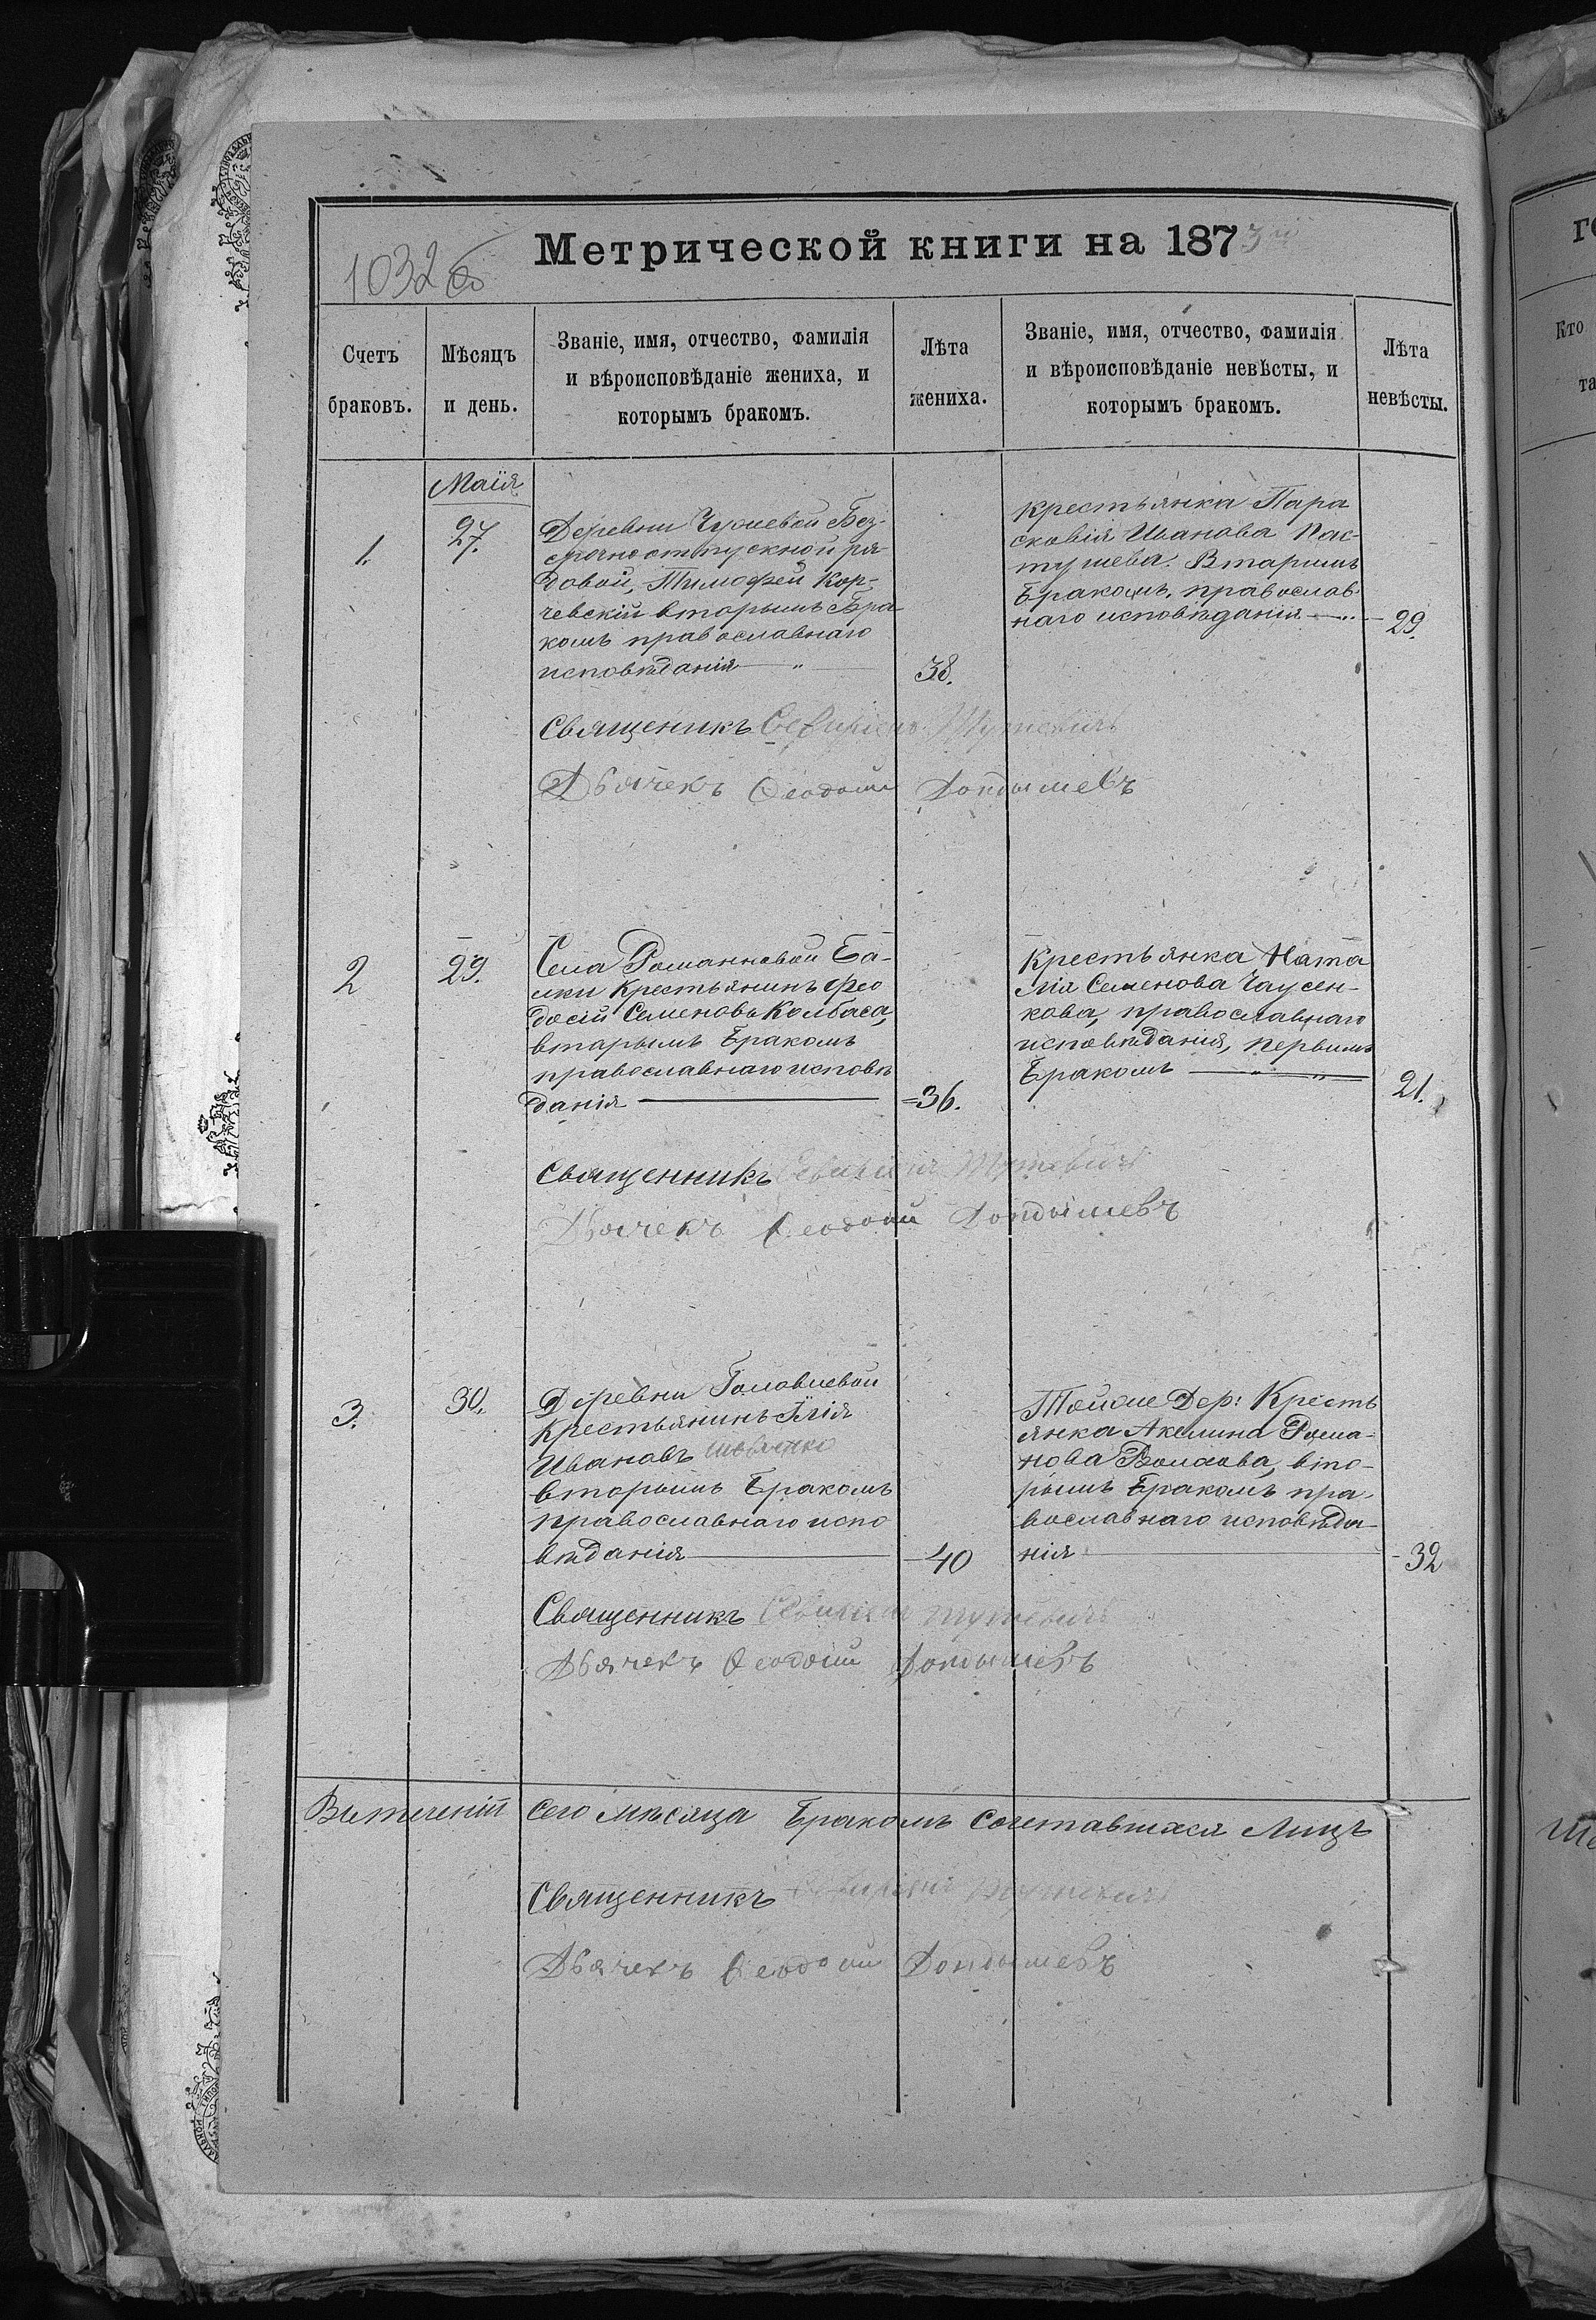 1032 об
Метрической книги на 1873
Счетъ браковъ.
Мѣсяцъ и день.
Званіе, имя, отчество, фамилія
и вѣроисповѣданіе жениха, и
которымъ бракомъ.
Лѣта жениха.
Званіе, имя, отчество, фамилія
и вѣроисповѣданіе невѣсты, и
которымъ бракомъ.
Лѣта невѣсты.
Маія
1.
27.
Деревни Без-
срочноотпускной ря-
довой, Тимофей Кор-
чевскій вторымъ бра
комъ православнаго
исповѣданія
38.
Крестьянка Пара
сковія Иванова Пас-
тушева. Втарымъ
бракомъ, православ-
наго исповѣданія
29.
Священикъ
Дьячекъ Ѳеодосій
2
29.
Села Романковой Ба-
лки Крестьянинъ Фео
досій Семеновъ Колбаса,
втарымъ бракомъ
православнаго исповѣ
данія
36.
Крестьянка Ната
лія Семенова Чаусен-
кова, православнаго
исповѣданія, первымъ
бракомъ
21.
Священникъ
Дьячекъ Ѳеодосій
3.
30.
Деревни
Крестьянинъ Илія
Ивановъ
вторымъ бракомъ
православнаго испо
вѣданія
40
Тойже Дер: Кресть
янка Акелина Рома-
нова вто-
рымъ бракомъ пра-
вославнаго исповѣда-
нія
32
Священникъ
Дьячекъ Ѳеодосій
Втеченіи сего мѣсяца бракомъ сочетавшихся лицъ
Священникъ
Дьячекъ Ѳеодосій
Кто